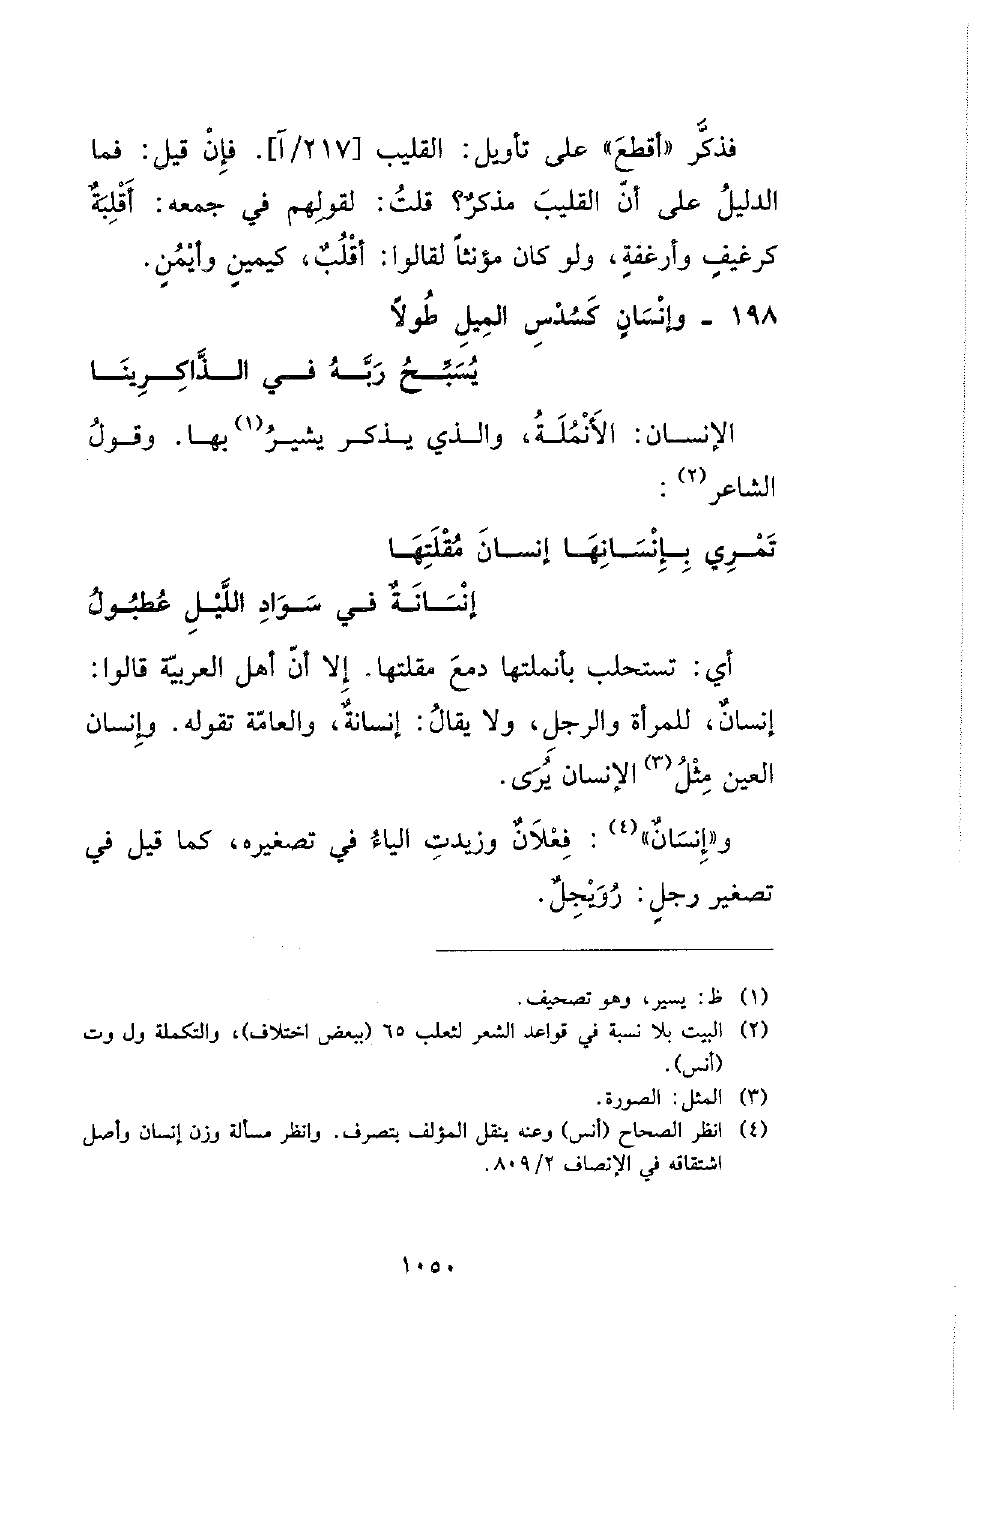 فذكَّر «أقطعَ» على تأويل: القليب [٢١٧/آ]. فإِنْ قيل: فما
الدليلُ على أنّ القليبَ مذكرٌ؟ قلتُ: لقولِهم في جمعه: أَقْلِبَةٌ
كرغيفٍ وأرغفةٍ، ولو كان مؤنثاً لقالوا: أقْلُبٌ، كيمينٍ وأيْمُنٍ.
١٩٨ - وإنْسَانٍ كَسُدْسِ المِيلِ طُولاً
يُسَبِّحُ رَبَّهُ في الذَّاكِرِينَا
الإنسان: الأَنْمُلَةُ، والذي يذكر يشيرُ(١) بها. وقولُ
الشاعر(٢):
تَمْرِي بِإِنْسَانِهَا إنسانَ مُقْلَتِهَا
إنْسَانَةٌ في سَوَادِ اللَّيْلِ عُطبُولُ
أي: تستحلب بأنملتها دمعَ مقلتها. إلا أنّ أهل العربيّة قالوا:
إنسانٌ، للمرأة والرجل، ولا يقالُ: إنسانةٌ، والعامّة تقوله. وإنسان
العين مِثْلُ(٣) الإنسان يُرَى.
و«إِنسَانٌ»(٤): فِعْلاَنٌ وزيدتِ الياءُ في تصغيره، كما قيل في
تصغير رجلٍ: رُوَيْجِلٌ.
(١) ظ: يسير، وهو تصحيف.
(٢) البيت بلا نسبة في قواعد الشعر لثعلب ٦٥ (ببعض اختلاف)، والتكملة ول وت
(أنس).
(٣) المثل: الصورة.
(٤) انظر الصحاح (أنس) وعنه ينقل المؤلف بتصرف. وانظر مسألة وزن إنسان وأصل
اشتقاقه في الإنصاف ٨٠٩/٢.
١٠٥٠